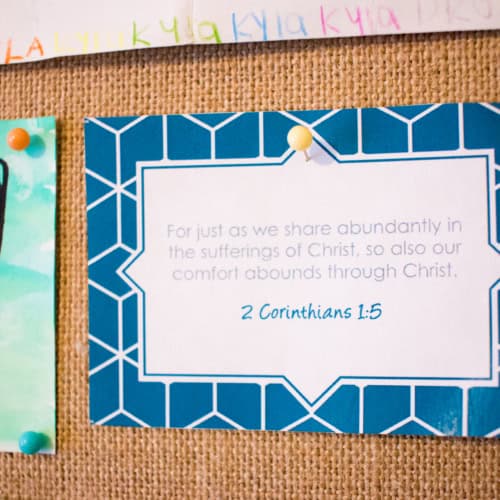 LA Kyla Kyla Kyla Kyla
For just as we share abundantly in
the sufferings of Christ, so also our
comfort abounds through Christ.
2 Corinthians 1:5